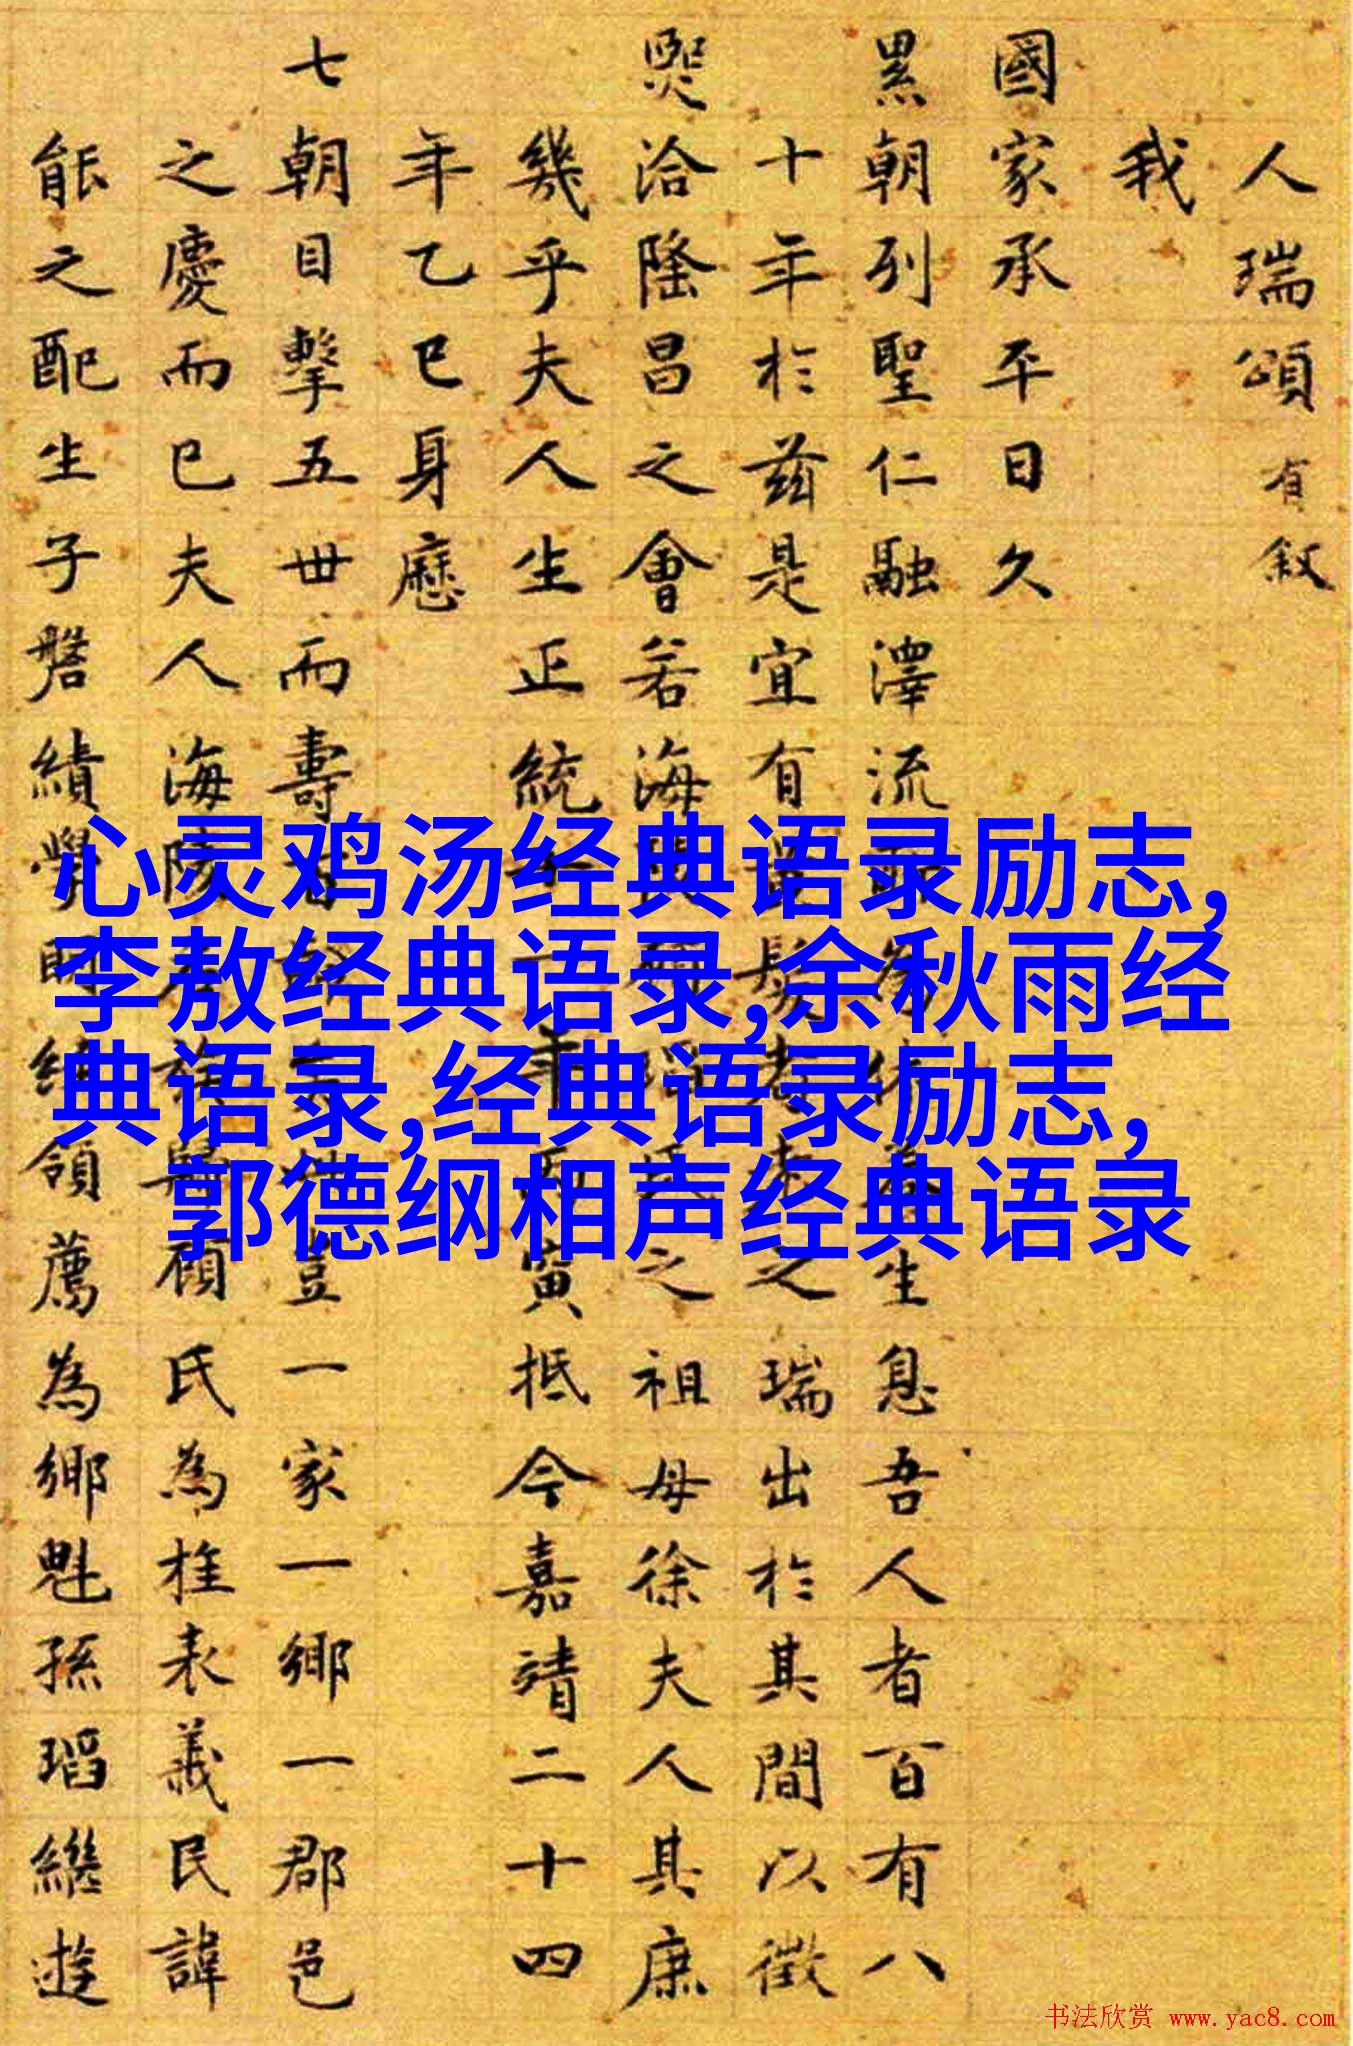 人瑞頌有叙
我
國家承平日久
累朝列聖仁融澤流生息吾人者百有八
十年於茲是宜有之瑞出於其間以徵
熙洽隆昌之會若海之祖母徐夫人其庶
幾乎夫人生正統寅抵今嘉靖二十四
年乙巳身歷
七朝目擊五世而壽豈一家一鄉一郡邑
之慶而已夫人海顧氏為桂表義民諱
能之配生子磐績學領薦為鄉魁孫瑫繼遊
心灵鸡汤经典语录励志,
李敖经典语录,余秋雨经
典语录,经典语录励志,
郭德纲相声经典语录
书法欣赏 www.yac8.com